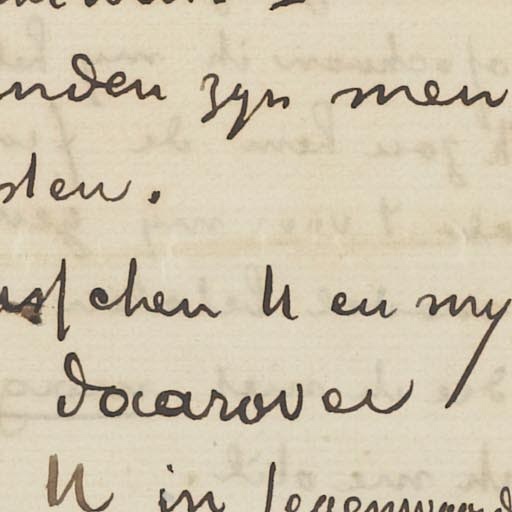 nden zyn men
sten.
usschen U en my
daarover
U in tegenwoord